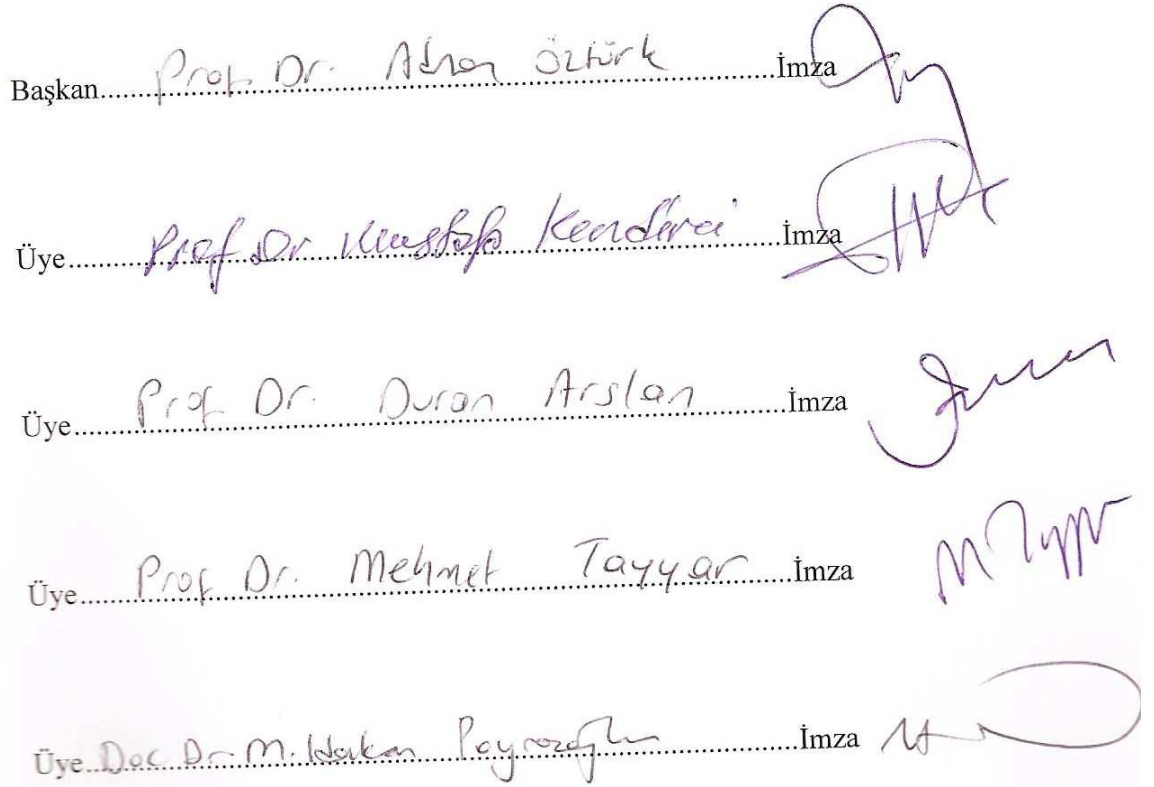 Başkan Prof. Dr. Adnan Öztürk İmza
Üye Prof Dr Mustafa Kendirci İmza
Üye Prof. Dr. Duran Arslan İmza
Üye Prof. Dr. Mehmet Tayyar İmza
Üye Doc Dr. M. Hakan Poyrazoğlu İmza